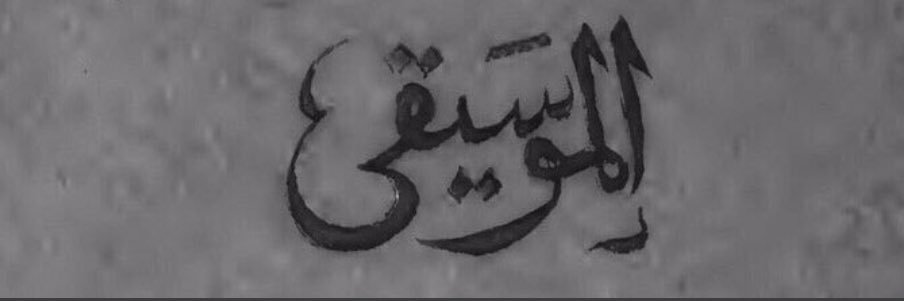 الموسيقى